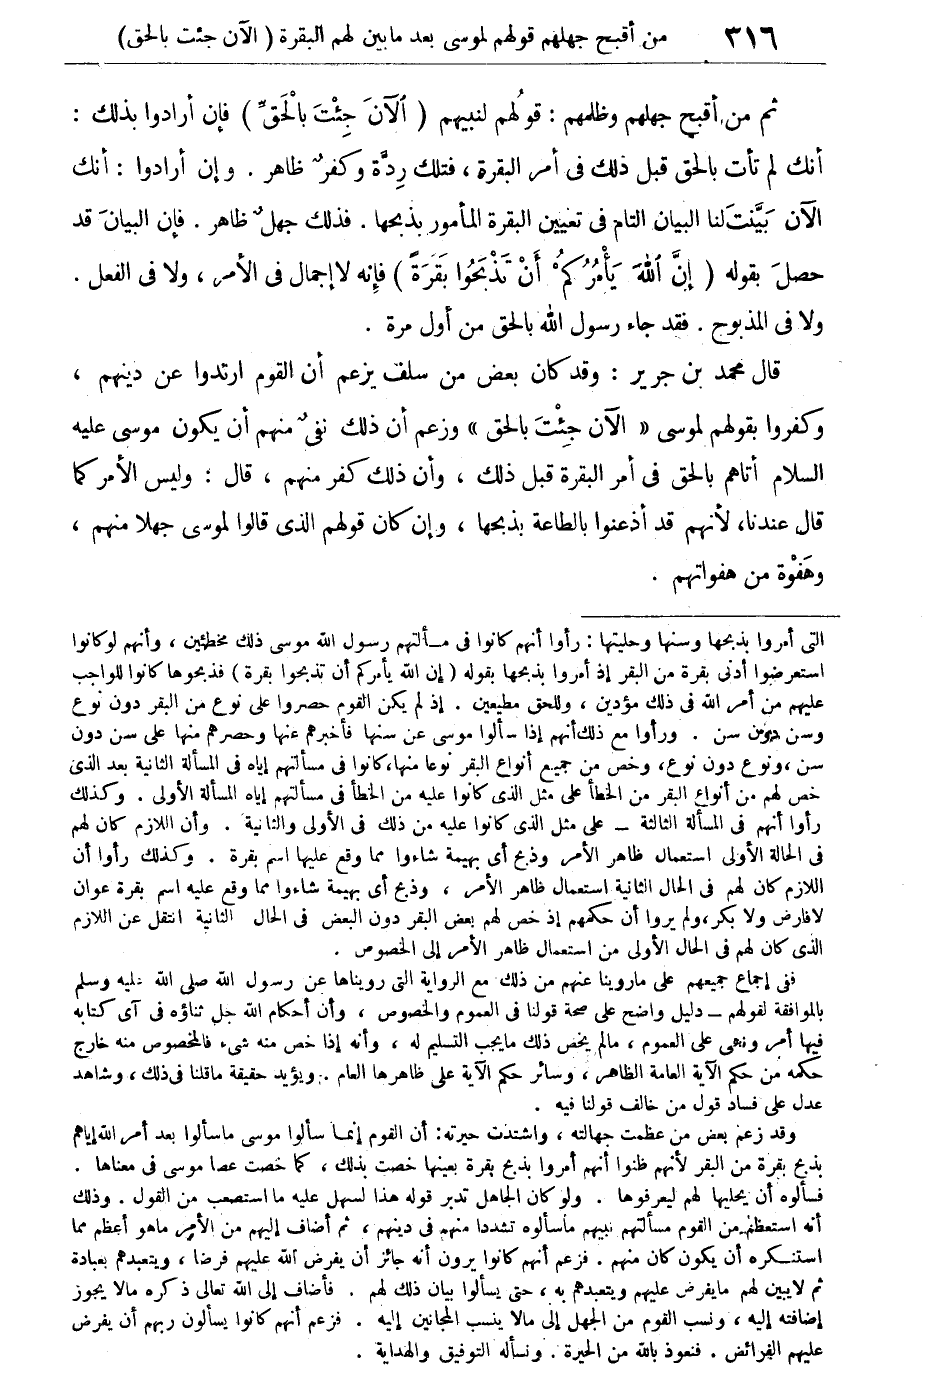 ٣١٦ من أقبح جهلهم قولهم لموسى بعد مابين لهم البقرة ( الآن جئت بالحق )
ثم من أقبح جهلهم وظلمهم : قولُهم لنبيهم ( ٱلآنَ جِئْتَ بِالْحَقِّ ) فإن أرادوا بذلك :
أنك لم تأت بالحق قبل ذلك فى أمر البقرة ، فتلك رِدَّة وكفرٌ ظاهر . وإن أرادوا : أنك
الآن بَيَّنتَ لنا البيان التام فى تعيين البقرة المأمور بذبحها . فذلك جهلٌ ظاهر . فإن البيانَ قد
حصلَ بقوله ( إنَّ ٱللهَ يَأْمُرُكُمْ أَنْ تَذْبَحُوا بَقَرَةً ) فإنه لا إجمال فى الأمر ، ولا فى الفعل .
ولا فى المذبوح . فقد جاء رسول الله بالحق من أول مرة .
قال محمد بن جرير : وقد كان بعض من سلف يزعم أن القوم ارتدوا عن دينهم ،
وكفروا بقولهم لموسى « الآن جِئْتَ بالحق » وزعم أن ذلك نفىٌ منهم أن يكون موسى عليه
السلام أتاهم بالحق فى أمر البقرة قبل ذلك ، وأن ذلك كفر منهم ، قال : وليس الأمر كما
قال عندنا، لأنهم قد أذعنوا بالطاعة بذبحها ، وإن كان قولهم الذى قالوا لموسى جهلا منهم ،
وهَفْوة من هفواتهم .
التى أمروا بذبحها وسنها وحليتها : رأوا أنهم كانوا فى مسألتهم رسول الله موسى ذلك مخطئين ، وأنهم لوكانوا
استعرضوا أدنى بقرة من البقر إذ أمروا بذبحها بقوله ( إن الله يأمركم أن تذبحوا بقرة ) فذبحوها كانوا للواجب
عليهم من أمر الله فى ذلك مؤدين ، وللحق مطيعين . إذ لم يكن القوم حصروا على نوع من البقر دون نوع
وسن دون سن . ورأوا مع ذلك أنهم إذا سألوا موسى عن سنها فأخبرهم عنها وحصرهم منها على سن دون
سن ، ونوع دون نوع، وخص من جميع أنواع البقر نوعا منها، كانوا فى مسألتهم إياه فى المسألة الثانية بعد الذى
خص لهم من أنواع البقر من الخطأ على مثل الذى كانوا عليه من الخطأ فى مسألتهم إياه المسألة الأولى . وكذلك
رأوا أنهم فى المسألة الثالثة – على مثل الذى كانوا عليه من ذلك فى الأولى والثانية . وأن اللازم كان لهم
فى الحالة الأولى استعمال ظاهر الأمر وذبح أى بهيمة شاءوا مما وقع عليها اسم بقرة . وكذلك رأوا أن
اللازم كان لهم فى الحال الثانية استعمال ظاهر الأمر ، وذبح أى بهيمة شاءوا مما وقع عليه اسم بقرة عوان
لافارض ولا بكر، ولم يروا أن حكمهم إذ خص لهم بعض البقر دون البعض فى الحال الثانية انتقل عن اللازم
الذى كان لهم فى الحال الأولى من استعمال ظاهر الأمر إلى الخصوص .
ففى إجماع جميعهم على ماروينا عنهم من ذلك مع الرواية التى رويناها عن رسول الله صلى الله عليه وسلم
بالموافقة لقولهم – دليل واضح على صحة قولنا فى العموم والخصوص ، وأن أحكام الله جل ثناؤه فى آى كتابه
فيها أمر ونهى على العموم ، مالم يخص ذلك مايجب التسليم له ، وأنه إذا خص منه شىء فالمخصوص منه خارج
حكمه من حكم الآية العامة الظاهر ، وسائر حكم الآية على ظاهرها العام . ويؤيد حقيقة ماقلنا فى ذلك ، وشاهد
عدل على فساد قول من خالف قولنا فيه .
وقد زعم بعض من عظمت جهالته ، واشتدت حيرته : أن القوم إنما سألوا موسى ماسألوا بعد أمر الله إياهم
بذبح بقرة من البقر لأنهم ظنوا أنهم أمروا بذبح بقرة بعينها خصت بذلك ، كما خصت عصا موسى فى معناها .
فسألوه أن يحليها لهم ليعرفوها . ولو كان الجاهل تدبر قوله هذا لسهل عليه ما استصعب من القول . وذلك
أنه استعظم من القوم مسألتهم نبيهم ماسألوه تشددا منهم فى دينهم ، ثم أضاف إليهم من الأمر ماهو أعظم مما
استنكره أن يكون كان منهم . فزعم أنهم كانوا يرون أنه جائز أن يفرض الله عليهم فرضا ، ويتعبدهم بعبادة
ثم لايبين لهم مايفرض عليهم ويتعبدهم به ، حتى يسألوا بيان ذلك لهم . فأضاف إلى الله تعالى ذكره مالا يجوز
إضافته إليه ، ونسب القوم من الجهل إلى مالا ينسب المجانين إليه . فزعم أنهم كانوا يسألون ربهم أن يفرض
عليهم الفرائض . فنعوذ بالله من الحيرة . ونسأله التوفيق والهداية .